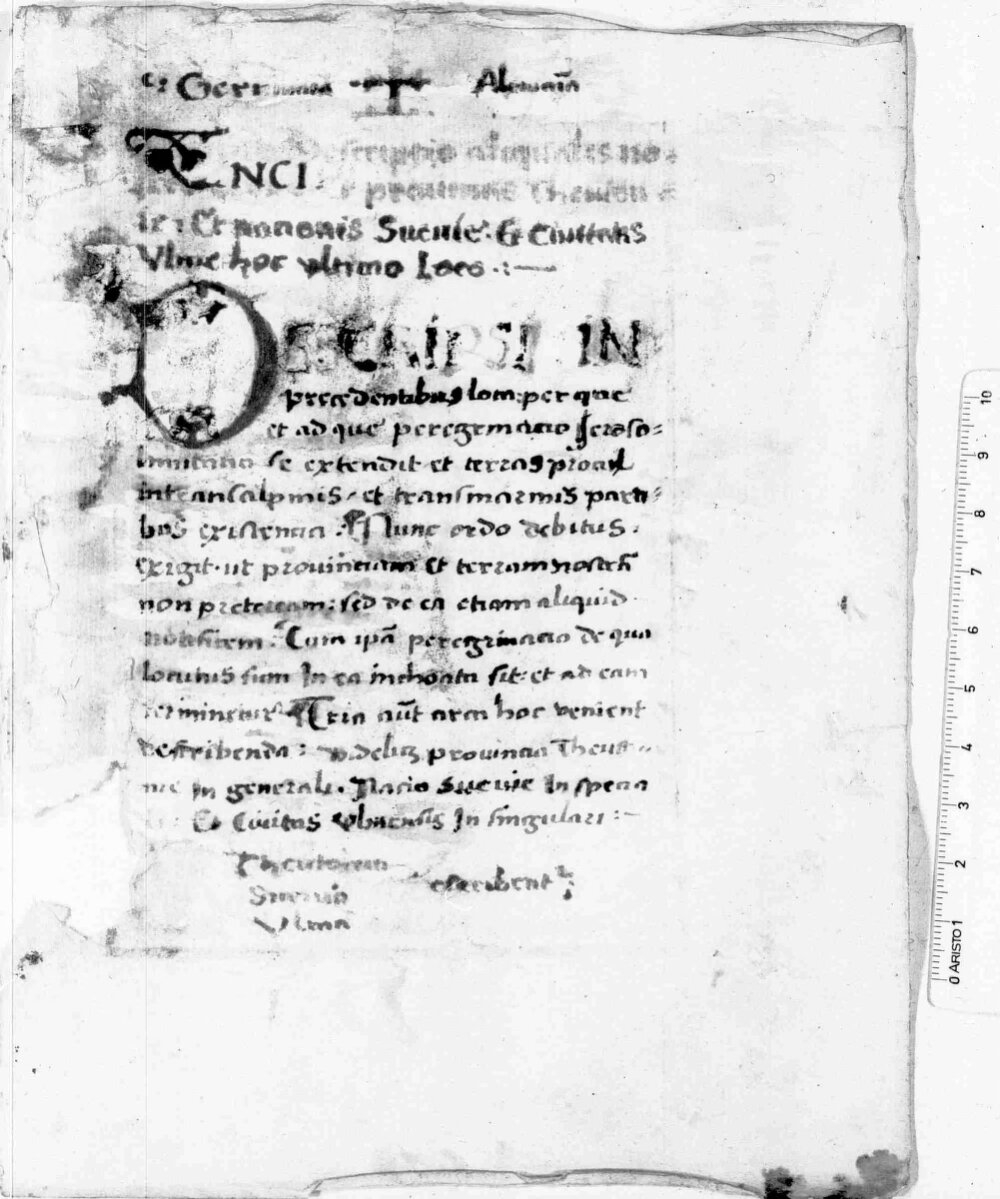 Germania Alemaīa
INCI Descriptio aliqualis no=
prouincie Theuton
ie : Et nacionis Sueuie. Et Ciuitatis
Vlme hoc vltimo Loco .:—
DESCRIPSI IN
precedentibus loca: per que
et ad que peregrinacio Jeroso=
limitana se extendit et terras procul
in transalpinis / et transmarinis parti=
bus existencia : Nunc ordo debitus
exigit. ut prouinciam et terram nostrā
non preteream: sed de ea etiam aliquid
Cum ipā peregrinacio de qua
locutus sum In ea inchoata sit: et ad eam
terminetur Tria aūt circa hoc venient
describenda : videlicꝫ prouincia Theuto
nie In generali. Nacio Sueuie In specia
Et Ciuitas Vlmensis In singulari :—
Theutonia
Sueuia describent
Vlma
10 9 8 7 6 5 4 3 2 1 0 ARISTO